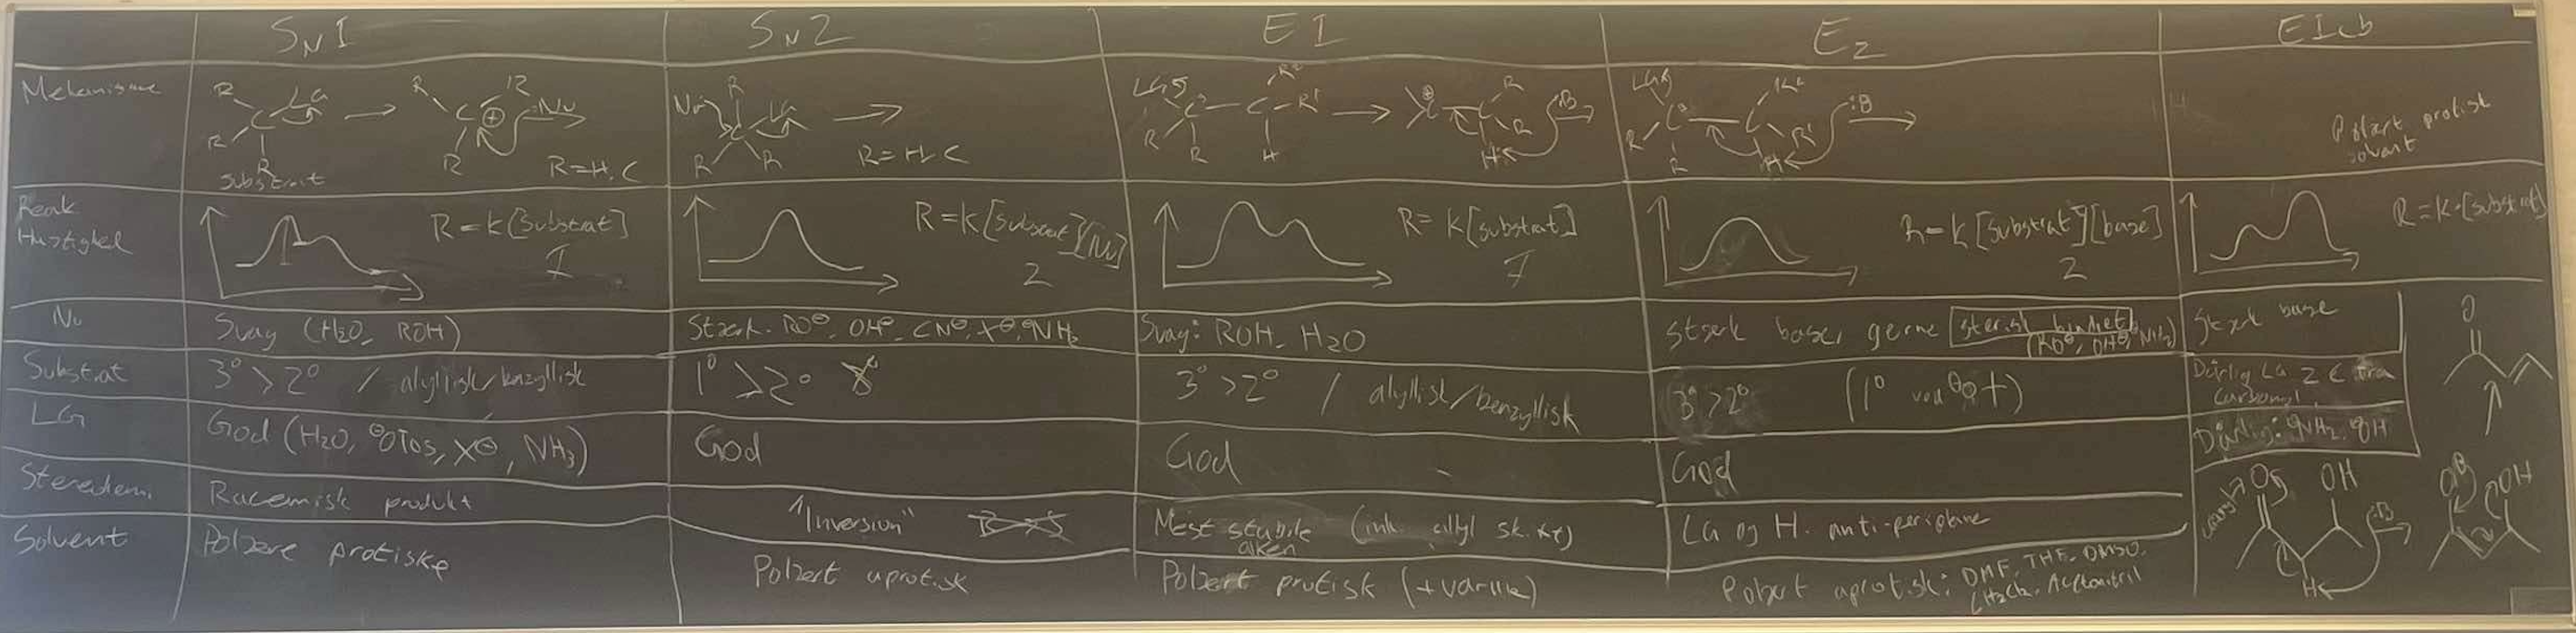 SN1 SN2 E1 E2 E1cb
Mekanisme
R LG C R R Substrat R C⊕ R Nu R R=H, C
Nu R LG C R R R=H, C
LG C C R R R' H ⊕ C R R H :B
LG C C R R R' H :B
Polært protisk
solvent
Reak
Hastighed
R=k[substrat] 1
R=k[substrat][Nu] 2
R=k[substrat] 1
R=k[substrat][base] 2
R=k·[substrat]
Nu
Svag (H2O, ROH)
Stærk. RO⊖, OH⊖, CN⊖, X⊖, ⊖NH2
Svag: ROH, H2O
Stærk base, gerne sterisk hindret
(RO⊖, OH⊖, ⊖NH2)
Stærk base
Substrat
3° > 2° / alyllisk/benzyllisk
1° > 2°
3° > 2° / alyllisk/benzyllisk
3° > 2° (1° ved ⊖O+)
Dårlig LG 2 C fra
Carbonyl
LG
God (H2O, ⊖OTos, X⊖, NH3)
God
God
God
Dårlig: ⊖NH2, ⊖OH
Stereokemi
Racemisk produkt
"Inversion" R→S
Mest stabile
alken
LG og H. anti-periplane
Solvent
Polære protiske
Polært aprotisk
Polært protisk (+varme)
Polært aprotisk: DMF, THF, DMSO,
CH2Cl2, Acetonitril
O
O OH :B H
O⊖ OH